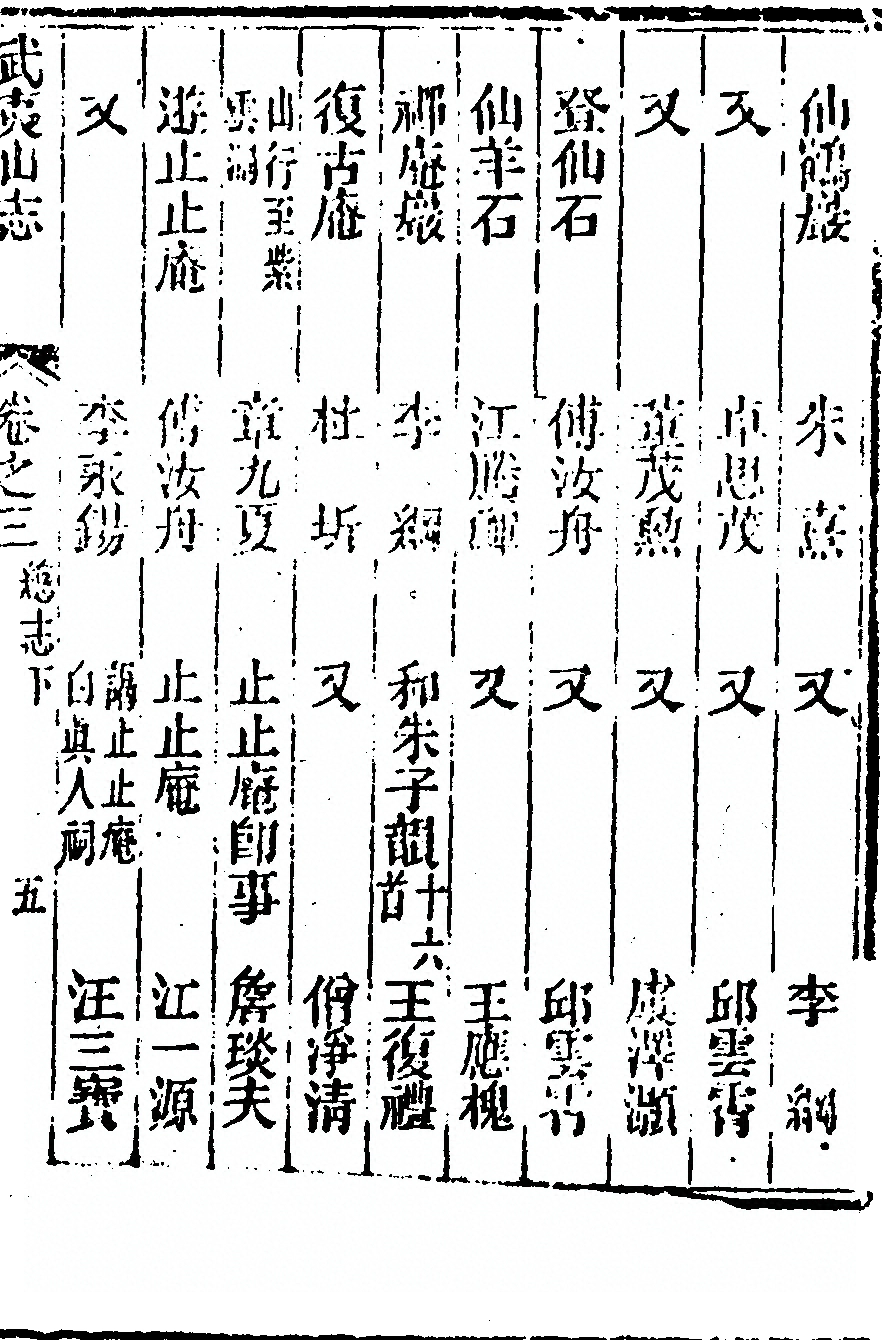 仙鶴巖　朱熹　又　李綱
又　卓思茂　又　邱雲霄
又　董茂勲　又　虞澤灝
登仙石　傅汝舟　又　邱雲霄
仙羊石　江騰輝　又　王應槐
禪庵巖　李綱　和朱子韻十六首　王復禮
復古庵　杜圻　又　僧淨清
山行至紫雲洞　章九夏　止止庵即事　詹琰夫
遊止止庵　傅汝舟　止止庵　江一源
又　李永錫　謁止止庵白眞人祠　汪三寶
武夷山志　卷之三　總志下　五